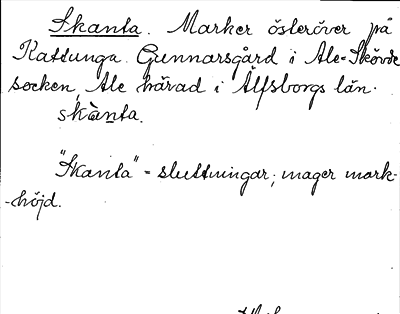 Skanta. Marker österöver på
Kattunga Gunnarsgård i Ale-Skövde
socken, Ale härad i Älfsborgs län.
skànta.
"Skanta" = sluttningar; mager mark-
-höjd.